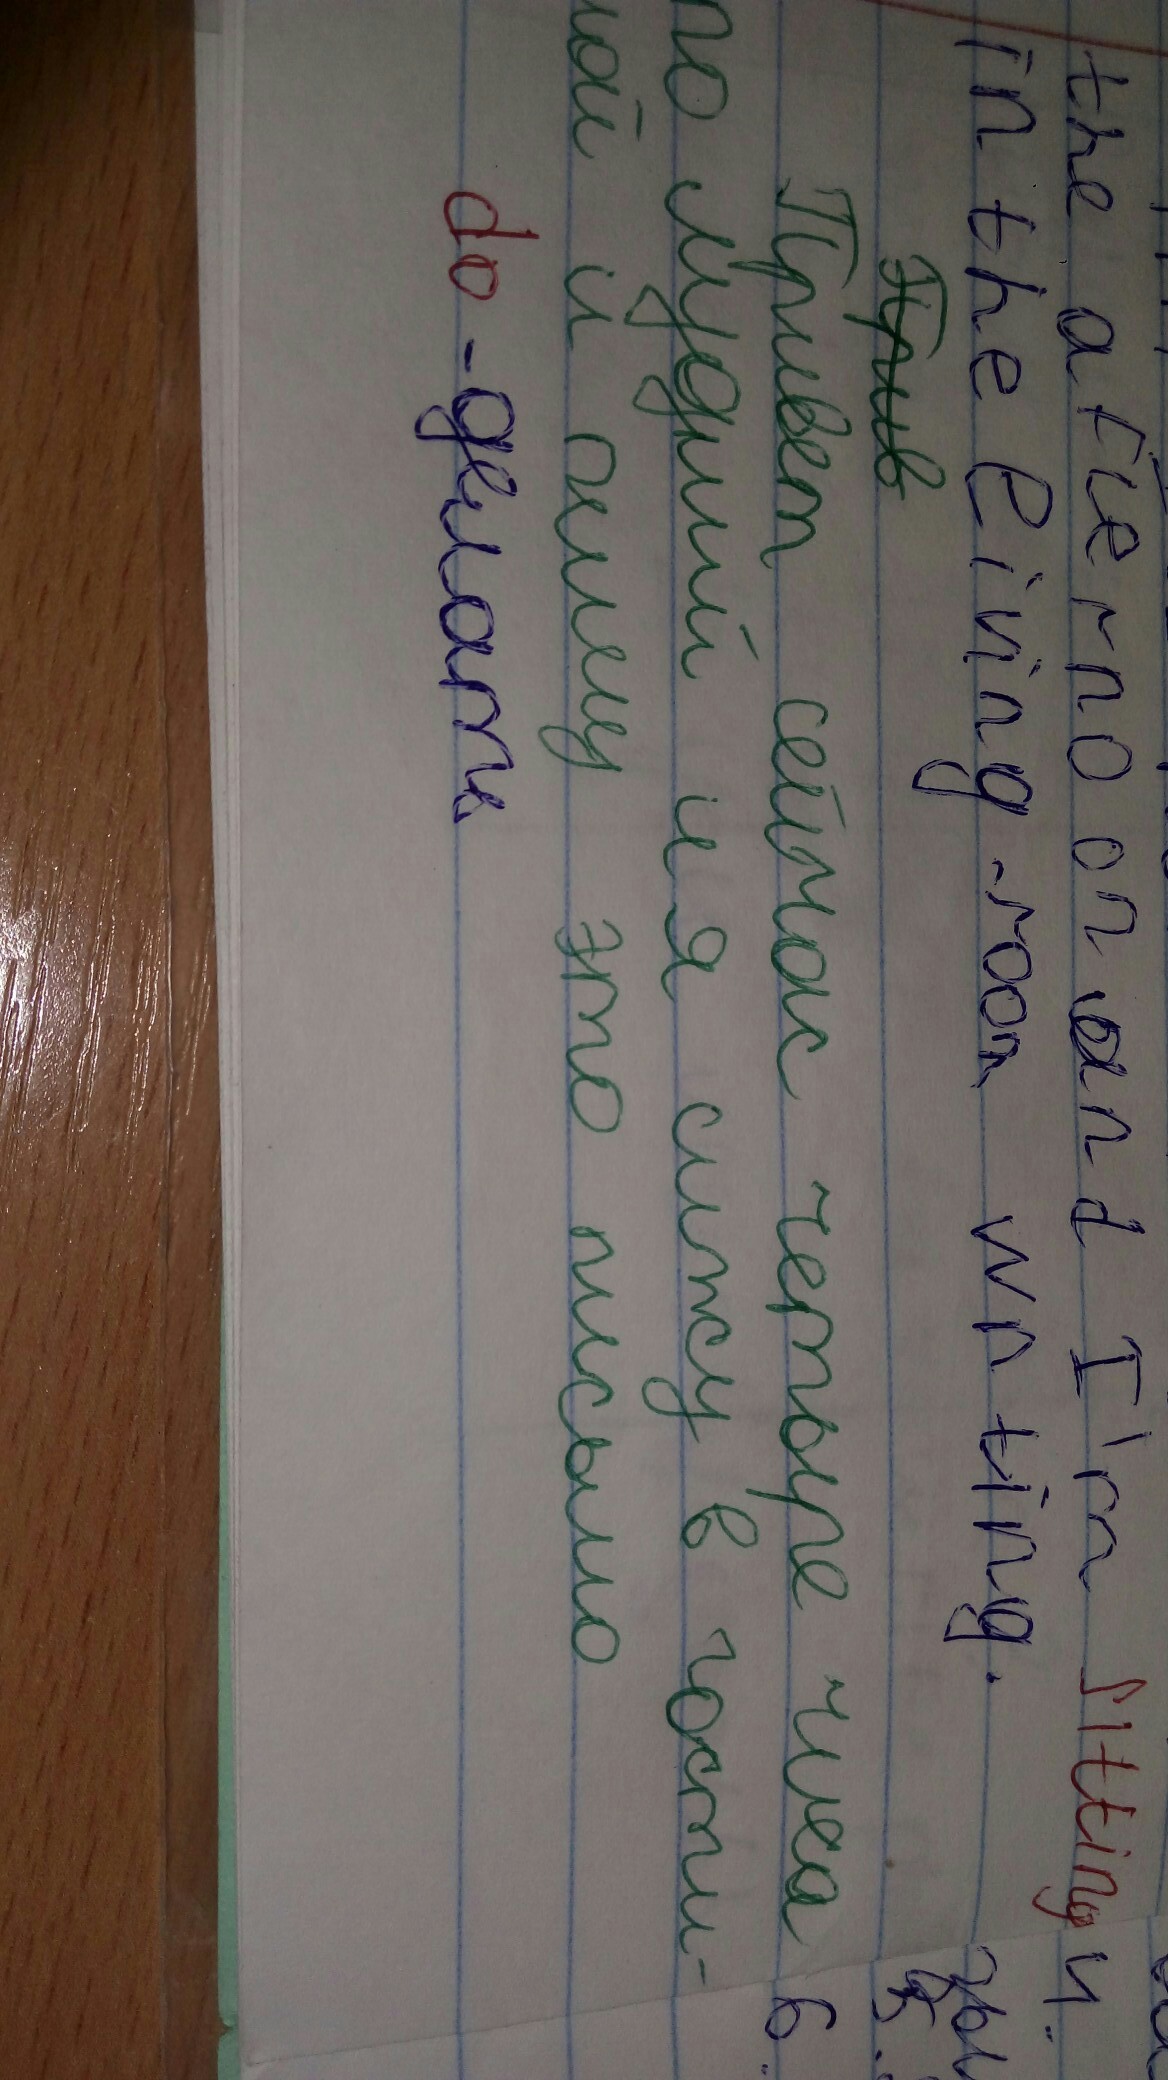 the afternoon and I'm sitting
in the living-room wnting.
Прив
Привет сейчас четыре чиса
по лудний и я сижу в гости-
ной и пишу это письмо
do - делать